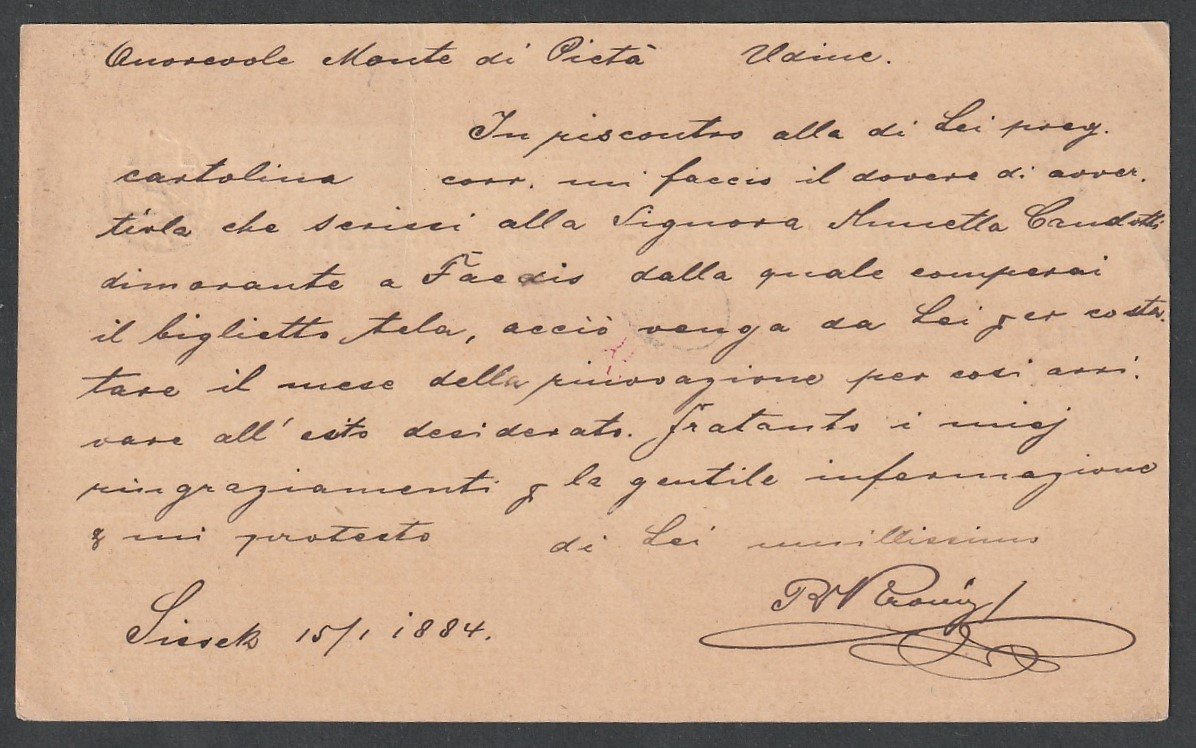 Onorevole Monte di Pietà Udine.
In riscontro alla di Lei preg.
cartolina corr. mi faccio il dovere di avver.
tirla che scrissi alla Signora Annetta Candotti
dimorante a Faedis dalla quale comperai
il biglietto tela, acciò venga da Lei per costa.
tare il mese della rinovazione per cosi arri.
vare all' esito desiderato. Fratanto i miej
ringraziamenti p la gentile informazione
& mi protesto di Lei umillissimo
Sissek 15/1 1884.